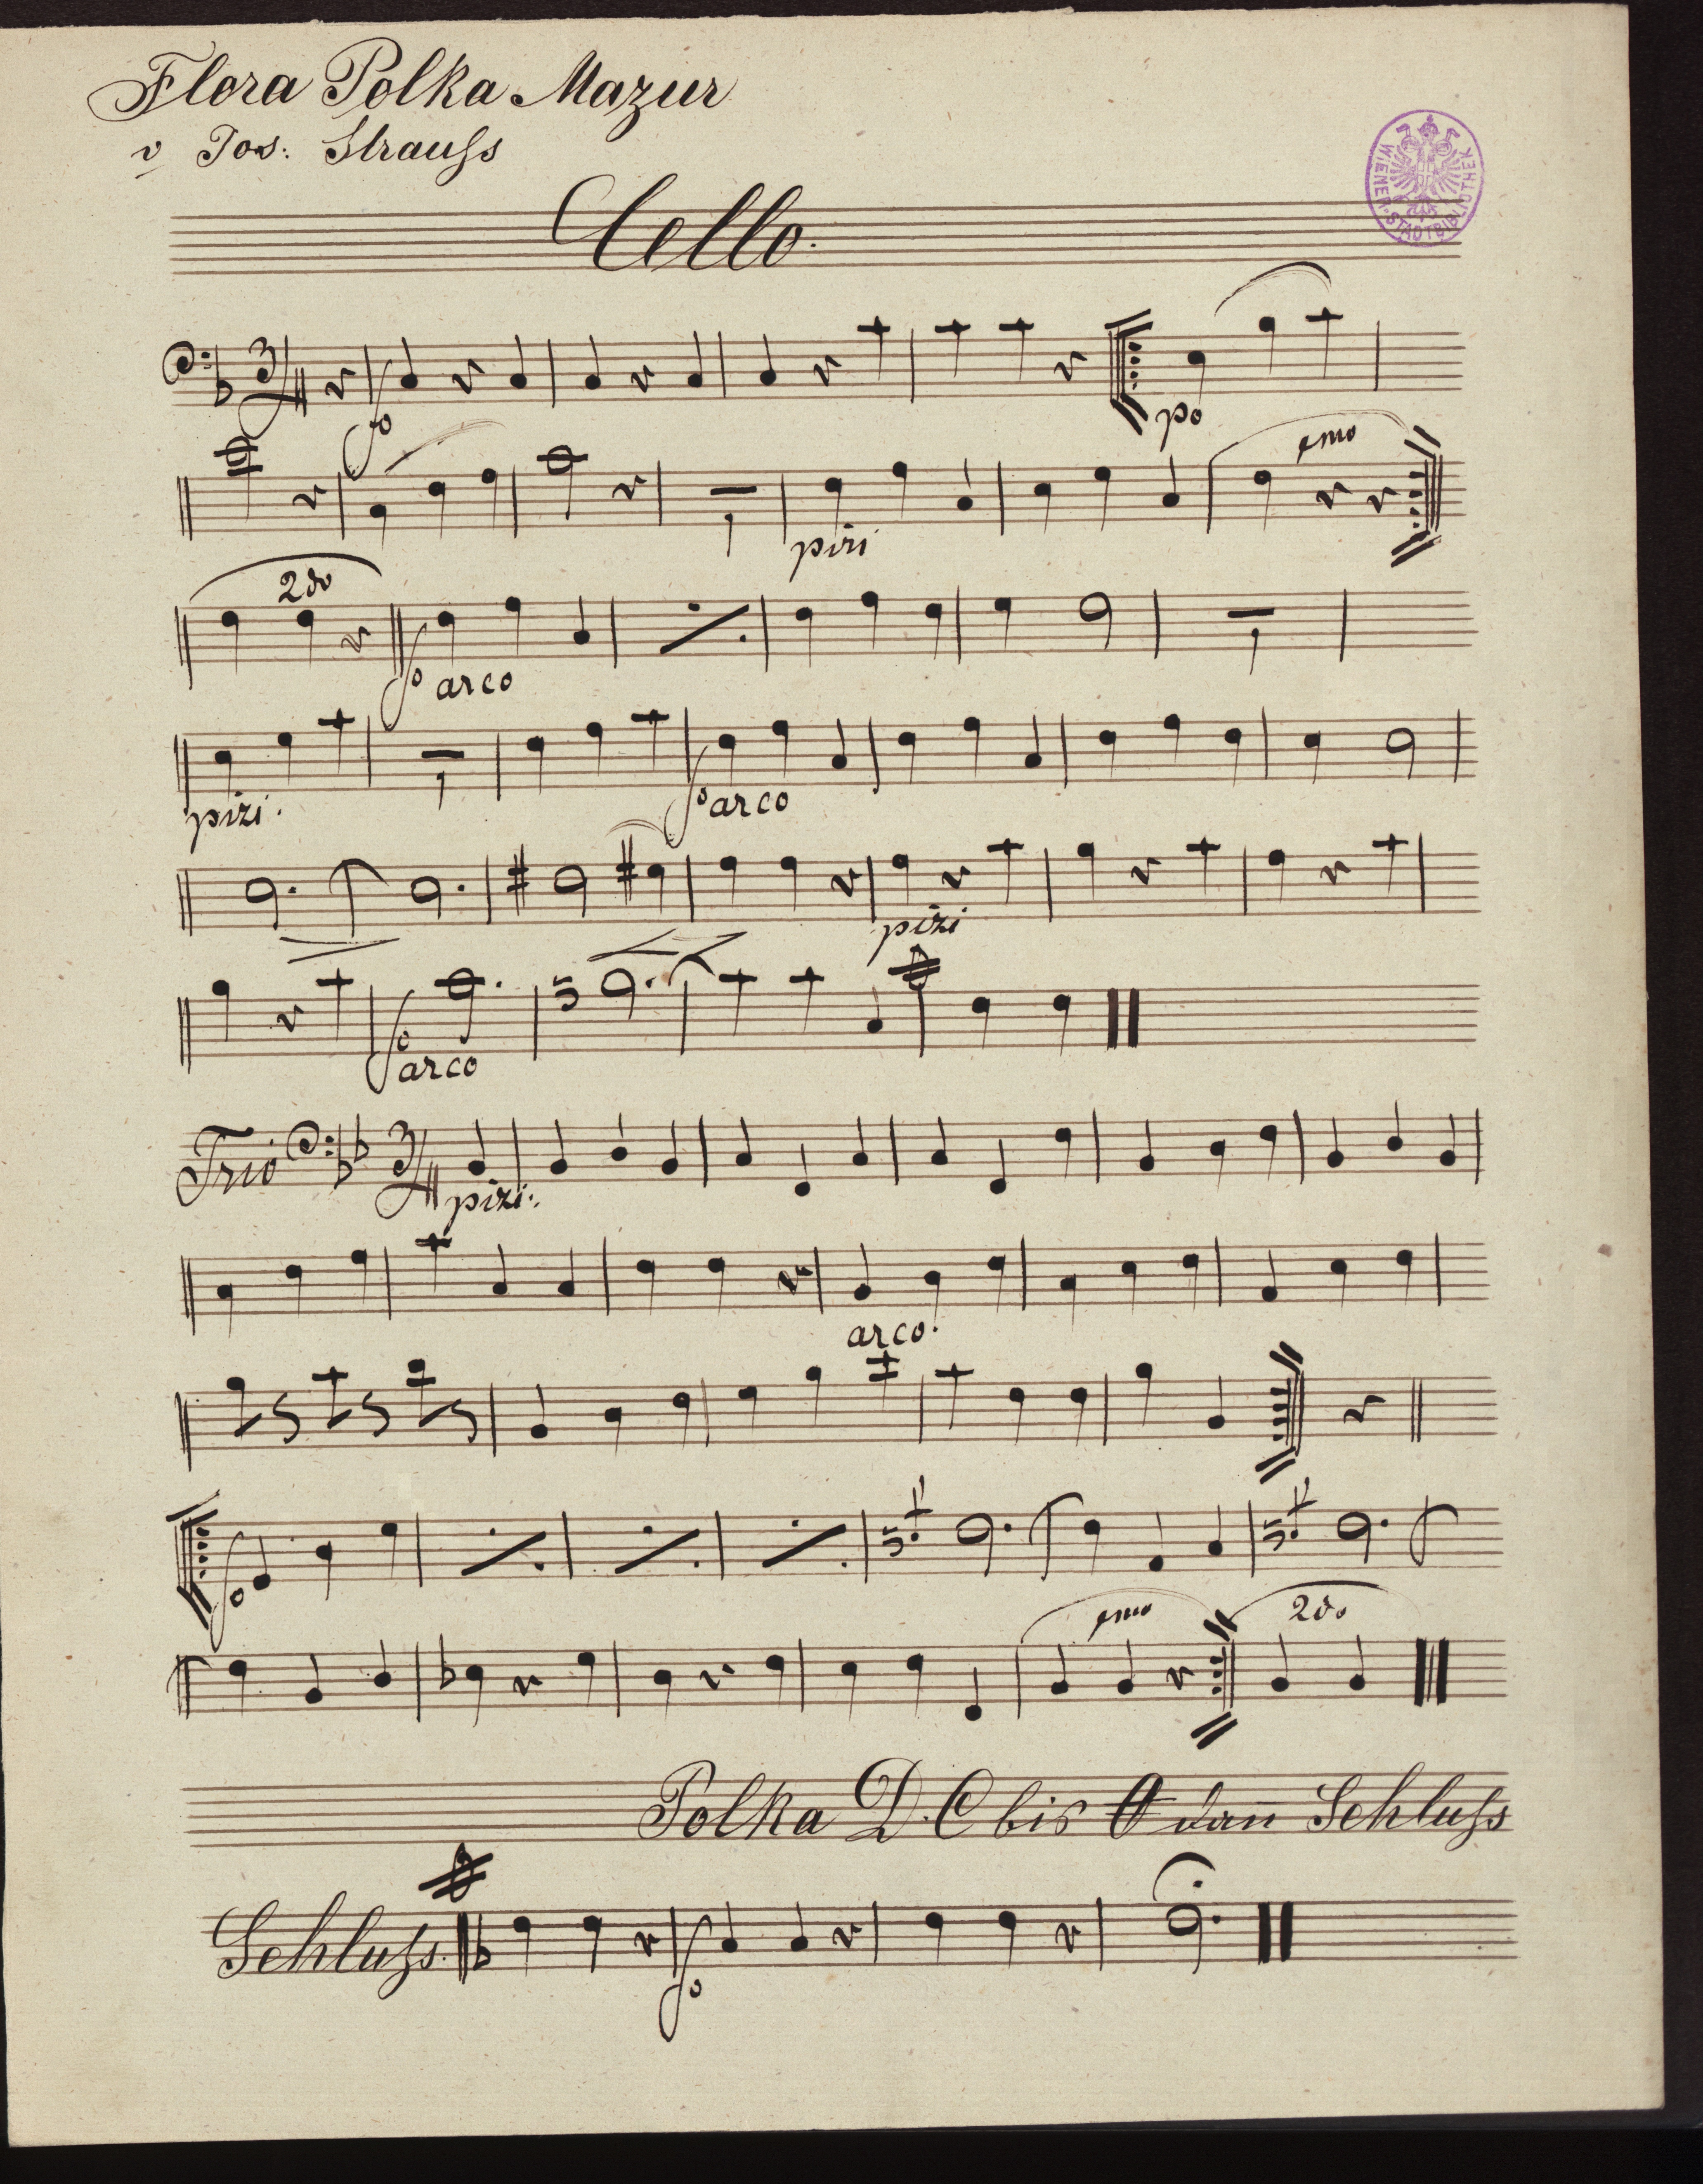 Flora Polka Mazur
v Jos: Strauſs
WIENER STADTBIBLIOTHEK
Cello.
3/4
fo
po
1mo
pizi
2do
fo arco
pizi.
fo arco
pizi
fo
arco
Trio 3/4
pizi.
arco.
fo
1mo 2do
Polka D. C bis O dan̄ Schluſs
Schluſs.
fo